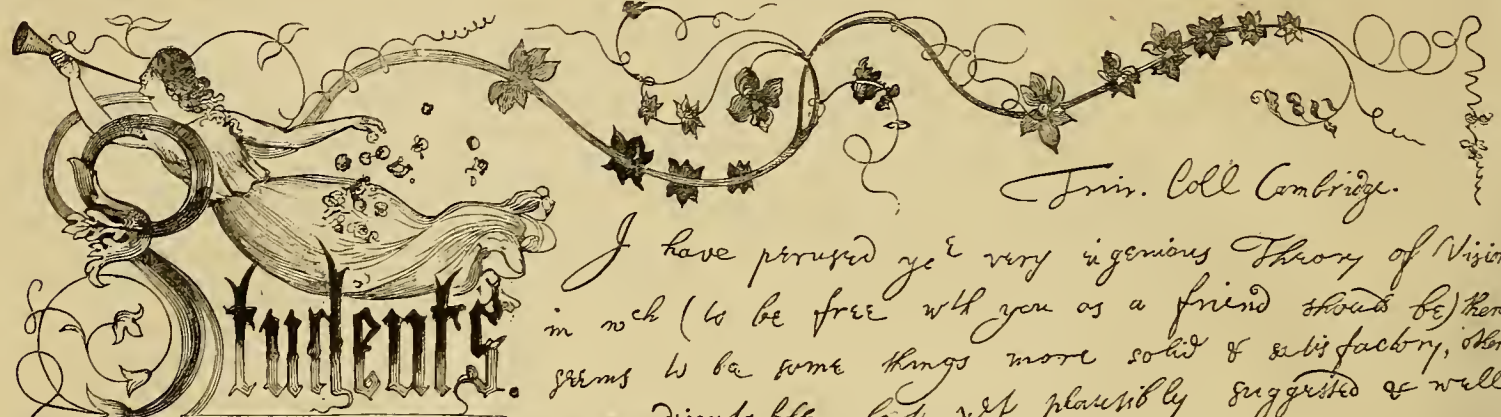 Students.
Trin. Coll Cambridge.
I have perused yoʳ very ingenious Theory of Vision
in wᶜʰ (to be free wth you as a friend should be) there
seems to be some things more solid & satisfactory, others
disputable but yet plausibly suggested & well